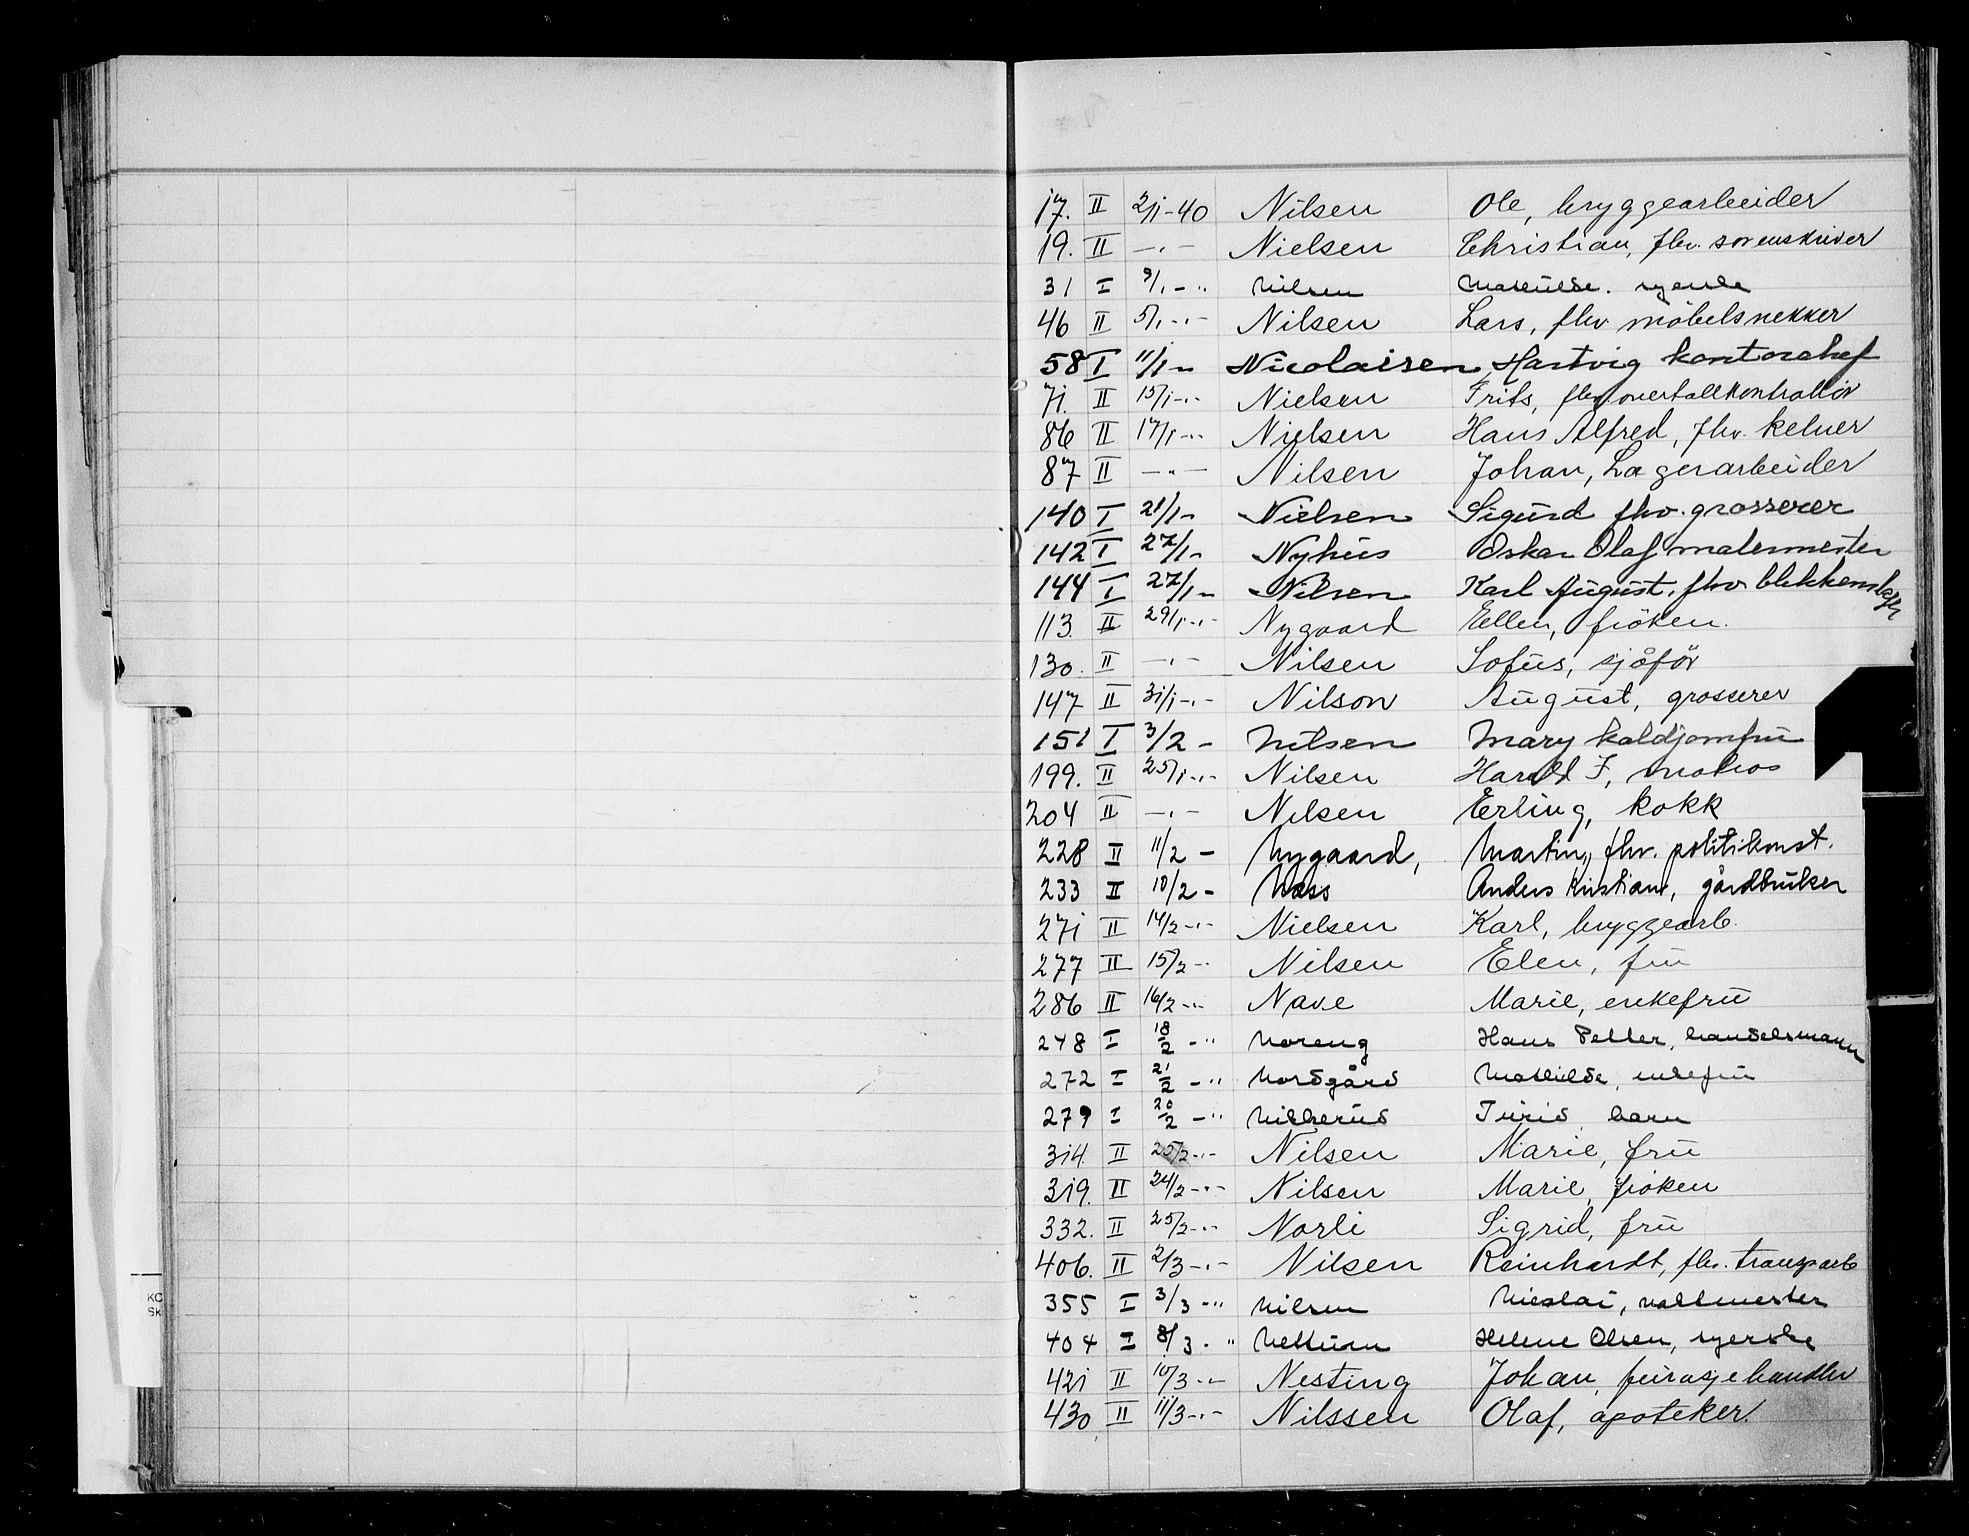 17. II 2/1-40 Nilsen Ole, bryggearbeider
19. II -"- Nielsen Christian, fhv. sorenskriver
31 I 9/1 - " Nilsen Mathilde. syerske
46 II 5/1 -"- Nilsen Lars, fhv møbelsnekker
58 I 11/1 - Nicolaisen, Hartvig kontorchef
71. II 15/1 -"- Nielsen Frits, fhv. overtollkontrollør
86 II 17/1 -"- Nielsen Hans Alfred, fhv. kelner
87 II -"- Nilsen Johan, Lagerarbeider
140 I 21/1 - Nielsen Sigurd fhv. grosserer
142 I 27/1 - Nyhus Oskar Olaf malermester
144 I 27/1 - Nilsen Karl August, fhv blikkenslager
113. II 29/1 -"- Nygaard Ellen, frøken.
130. II -"- Nilsen Sofus, sjåfør
147 II 31/1 -"- Nilson August, grosserer
151 I 3/2 - Nilsen Mary koldjomfru
199. II 25/1 -"- Nilsen Harald F, matros
204 II -"- Nilsen Erling, kokk
228 II 11/2 - Nygaard, Martin, fhv. politikonst.
233 II 10/2 - Næss Anders Kristian, gårdbruker
271 II 14/2 -"- Nielsen Karl, bryggearb.
277 II 15/2 -"- Nilsen Elen, fru
286 II 16/2 -"- Nave Marie, enkefru
248 I 18/2 - " Noreng Hans Petter, handelsmann
272 I 21/2 - " Nordgård Mathilde, enkefru
279 I 20/2 - " Nilherud Turid, barn
314. II 25/2 -"- Nilsen Marie, fru
319. II 24/2 -"- Nilsen Marie, frøken
332. II 25/2 -"- Norli Sigrid, fru
406. II 2/3 -"- Nilsen Reinhardt, fhv. transp.arb
355 I 3/3 - " Nilsen Nicolai, vaktmester
404 I 8/3 - " Nettum Helene Olsen, syerske
421 II 10/3 -"- Nesting Johan, furasjehandler
430 II 11/3 -"- Nilssen Olaf, apoteker.